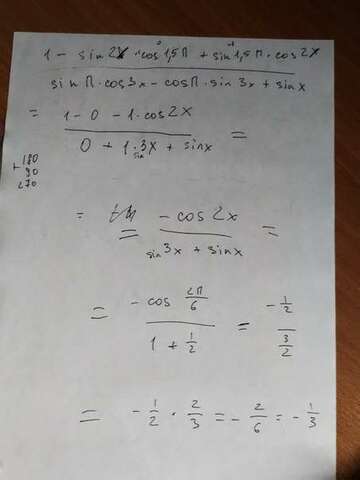 1 - sin2x · cos1,5π + sin1,5π · cos2x
sinπ · cos3x - cosπ · sin3x + sinx
= 1 - 0 - 1 · cos2x =
0 + 1 · sin3x + sinx
180
+ 90
270
= = - cos2x =
sin3x + sinx
= - cos 2π/6 = - 1/2
1 + 1/2 3/2
= - 1/2 · 2/3 = - 2/6 = - 1/3